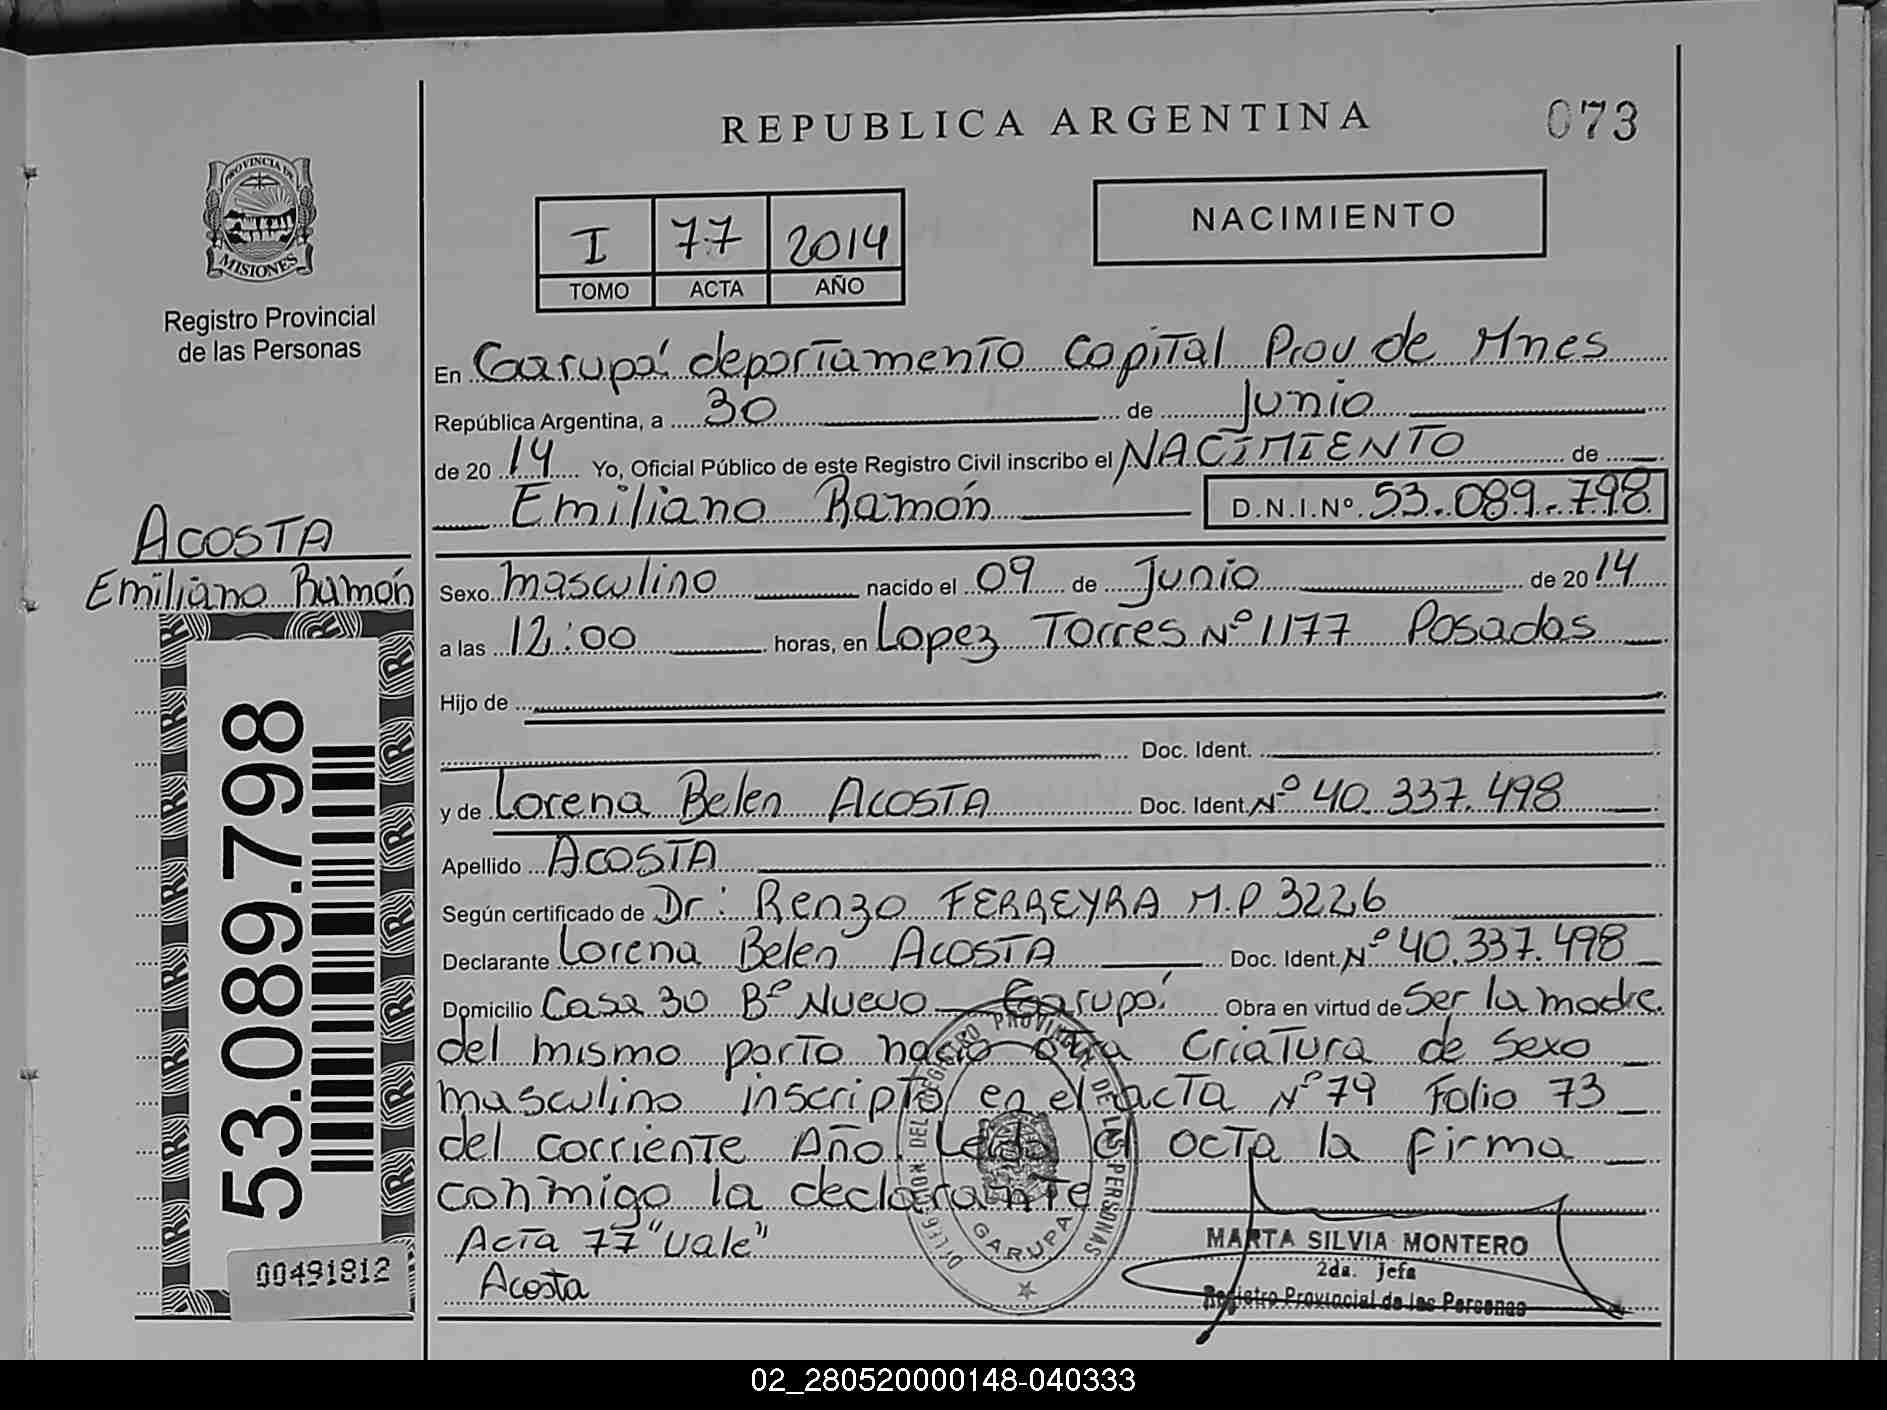 REPUBLICA ARGENTINA
073
PROVINCIA DE
MISIONES
Registro Provincial
de las Personas
I 77 2014
TOMO ACTA AÑO
NACIMIENTO
En Garupá departamento Capital Prov de Mnes
República Argentina, a 30 de Junio
de 2014 Yo, Oficial Público de este Registro Civil inscribo el NACIMIENTO de
Emiliano Ramón D.N.I.Nº 53.089.798
ACOSTA
Emiliano Ramón
Sexo masculino nacido el 09 de Junio de 2014
a las 12:00 horas, en Lopez Torres Nº 1177 Posadas
Hijo de
Doc. Ident.
y de Lorena Belen ACOSTA Doc. Ident. Nº 40.337.498
Apellido ACOSTA
Según certificado de Dr: Renzo FERREYRA M.P 3226
Declarante Lorena Belen ACOSTA Doc. Ident. Nº 40.337.498
Domicilio Casa 30 Bº Nuevo Garupá Obra en virtud de Ser la madre.
del mismo parto nacio otra criatura de sexo
masculino inscripto en el acta Nº 79 Folio 73
del corriente Año Leida el acta la firma
conmigo la declarante
Acta 77 "Vale"
Acosta
DELEGACION DEL REGISTRO PROVINCIAL DE LAS PERSONAS
GARUPA
MARTA SILVIA MONTERO
2da. Jefa
Registro Provincial de las Personas
53.089.798
00491812
02_280520000148-040333